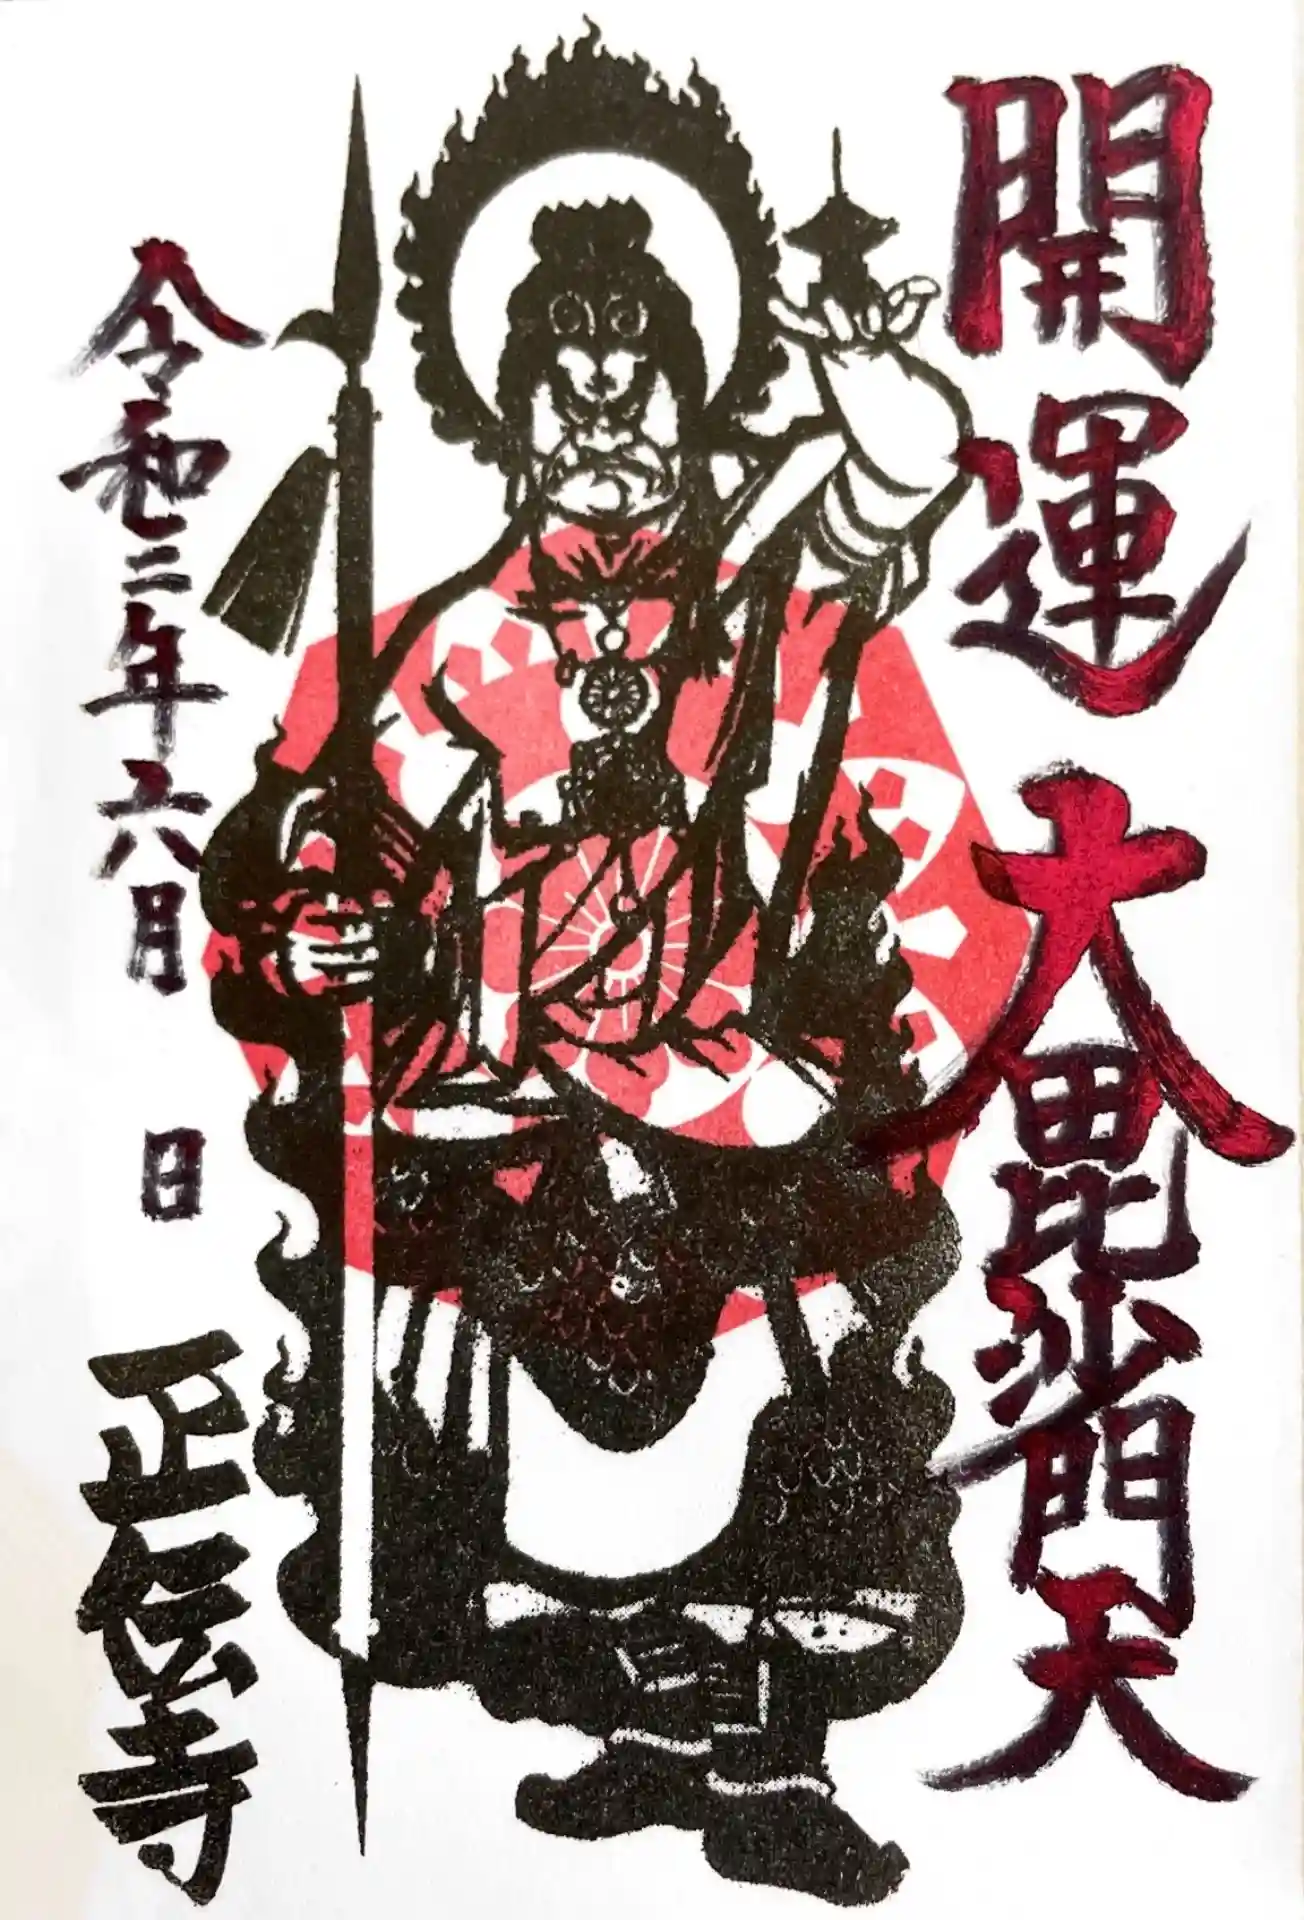 開運大毘沙門天
令和二年六月 日
正伝寺